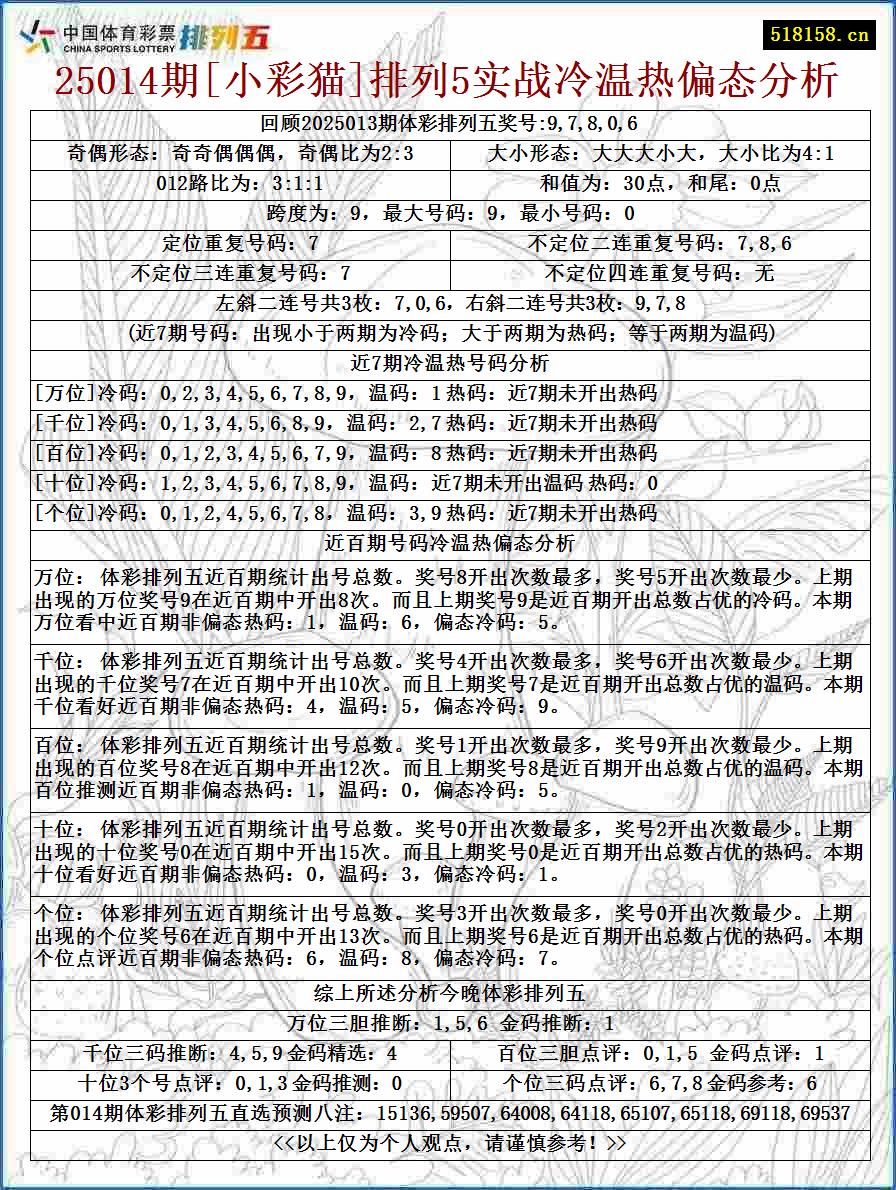 中国体育彩票 排列五
CHINA SPORTS LOTTERY
518158.cn
25014期[小彩猫]排列5实战冷温热偏态分析
回顾2025013期体彩排列五奖号:9,7,8,0,6
奇偶形态：奇奇偶偶偶，奇偶比为2:3
大小形态：大大大小大，大小比为4:1
012路比为：3:1:1
和值为：30点，和尾：0点
跨度为：9，最大号码：9，最小号码：0
定位重复号码：7
不定位二连重复号码：7,8,6
不定位三连重复号码：7
不定位四连重复号码：无
左斜二连号共3枚：7,0,6，右斜二连号共3枚：9,7,8
(近7期号码：出现小于两期为冷码；大于两期为热码；等于两期为温码)
近7期冷温热号码分析
[万位]冷码：0,2,3,4,5,6,7,8,9，温码：1 热码：近7期未开出热码
[千位]冷码：0,1,3,4,5,6,8,9，温码：2,7 热码：近7期未开出热码
[百位]冷码：0,1,2,3,4,5,6,7,9，温码：8 热码：近7期未开出热码
[十位]冷码：1,2,3,4,5,6,7,8,9，温码：近7期未开出温码 热码：0
[个位]冷码：0,1,2,4,5,6,7,8，温码：3,9 热码：近7期未开出热码
近百期号码冷温热偏态分析
万位：体彩排列五近百期统计出号总数。奖号8开出次数最多，奖号5开出次数最少。上期
出现的万位奖号9在近百期中开出8次。而且上期奖号9是近百期开出总数占优的冷码。本期
万位看中近百期非偏态热码：1，温码：6，偏态冷码：5。
千位：体彩排列五近百期统计出号总数。奖号4开出次数最多，奖号6开出次数最少。上期
出现的千位奖号7在近百期中开出10次。而且上期奖号7是近百期开出总数占优的温码。本期
千位看好近百期非偏态热码：4，温码：5，偏态冷码：9。
百位：体彩排列五近百期统计出号总数。奖号1开出次数最多，奖号9开出次数最少。上期
出现的百位奖号8在近百期中开出12次。而且上期奖号8是近百期开出总数占优的温码。本期
百位推测近百期非偏态热码：1，温码：0，偏态冷码：5。
十位：体彩排列五近百期统计出号总数。奖号0开出次数最多，奖号2开出次数最少。上期
出现的十位奖号0在近百期中开出15次。而且上期奖号0是近百期开出总数占优的热码。本期
十位看好近百期非偏态热码：0，温码：3，偏态冷码：1。
个位：体彩排列五近百期统计出号总数。奖号3开出次数最多，奖号0开出次数最少。上期
出现的个位奖号6在近百期中开出13次。而且上期奖号6是近百期开出总数占优的热码。本期
个位点评近百期非偏态热码：6，温码：8，偏态冷码：7。
综上所述分析今晚体彩排列五
万位三胆推断：1,5,6 金码推断：1
千位三码推断：4,5,9 金码精选：4
百位三胆点评：0,1,5 金码点评：1
十位3个号点评：0,1,3 金码推测：0
个位三码点评：6,7,8 金码参考：6
第014期体彩排列五直选预测八注：15136,59507,64008,64118,65107,65118,69118,69537
<<以上仅为个人观点，请谨慎参考！>>